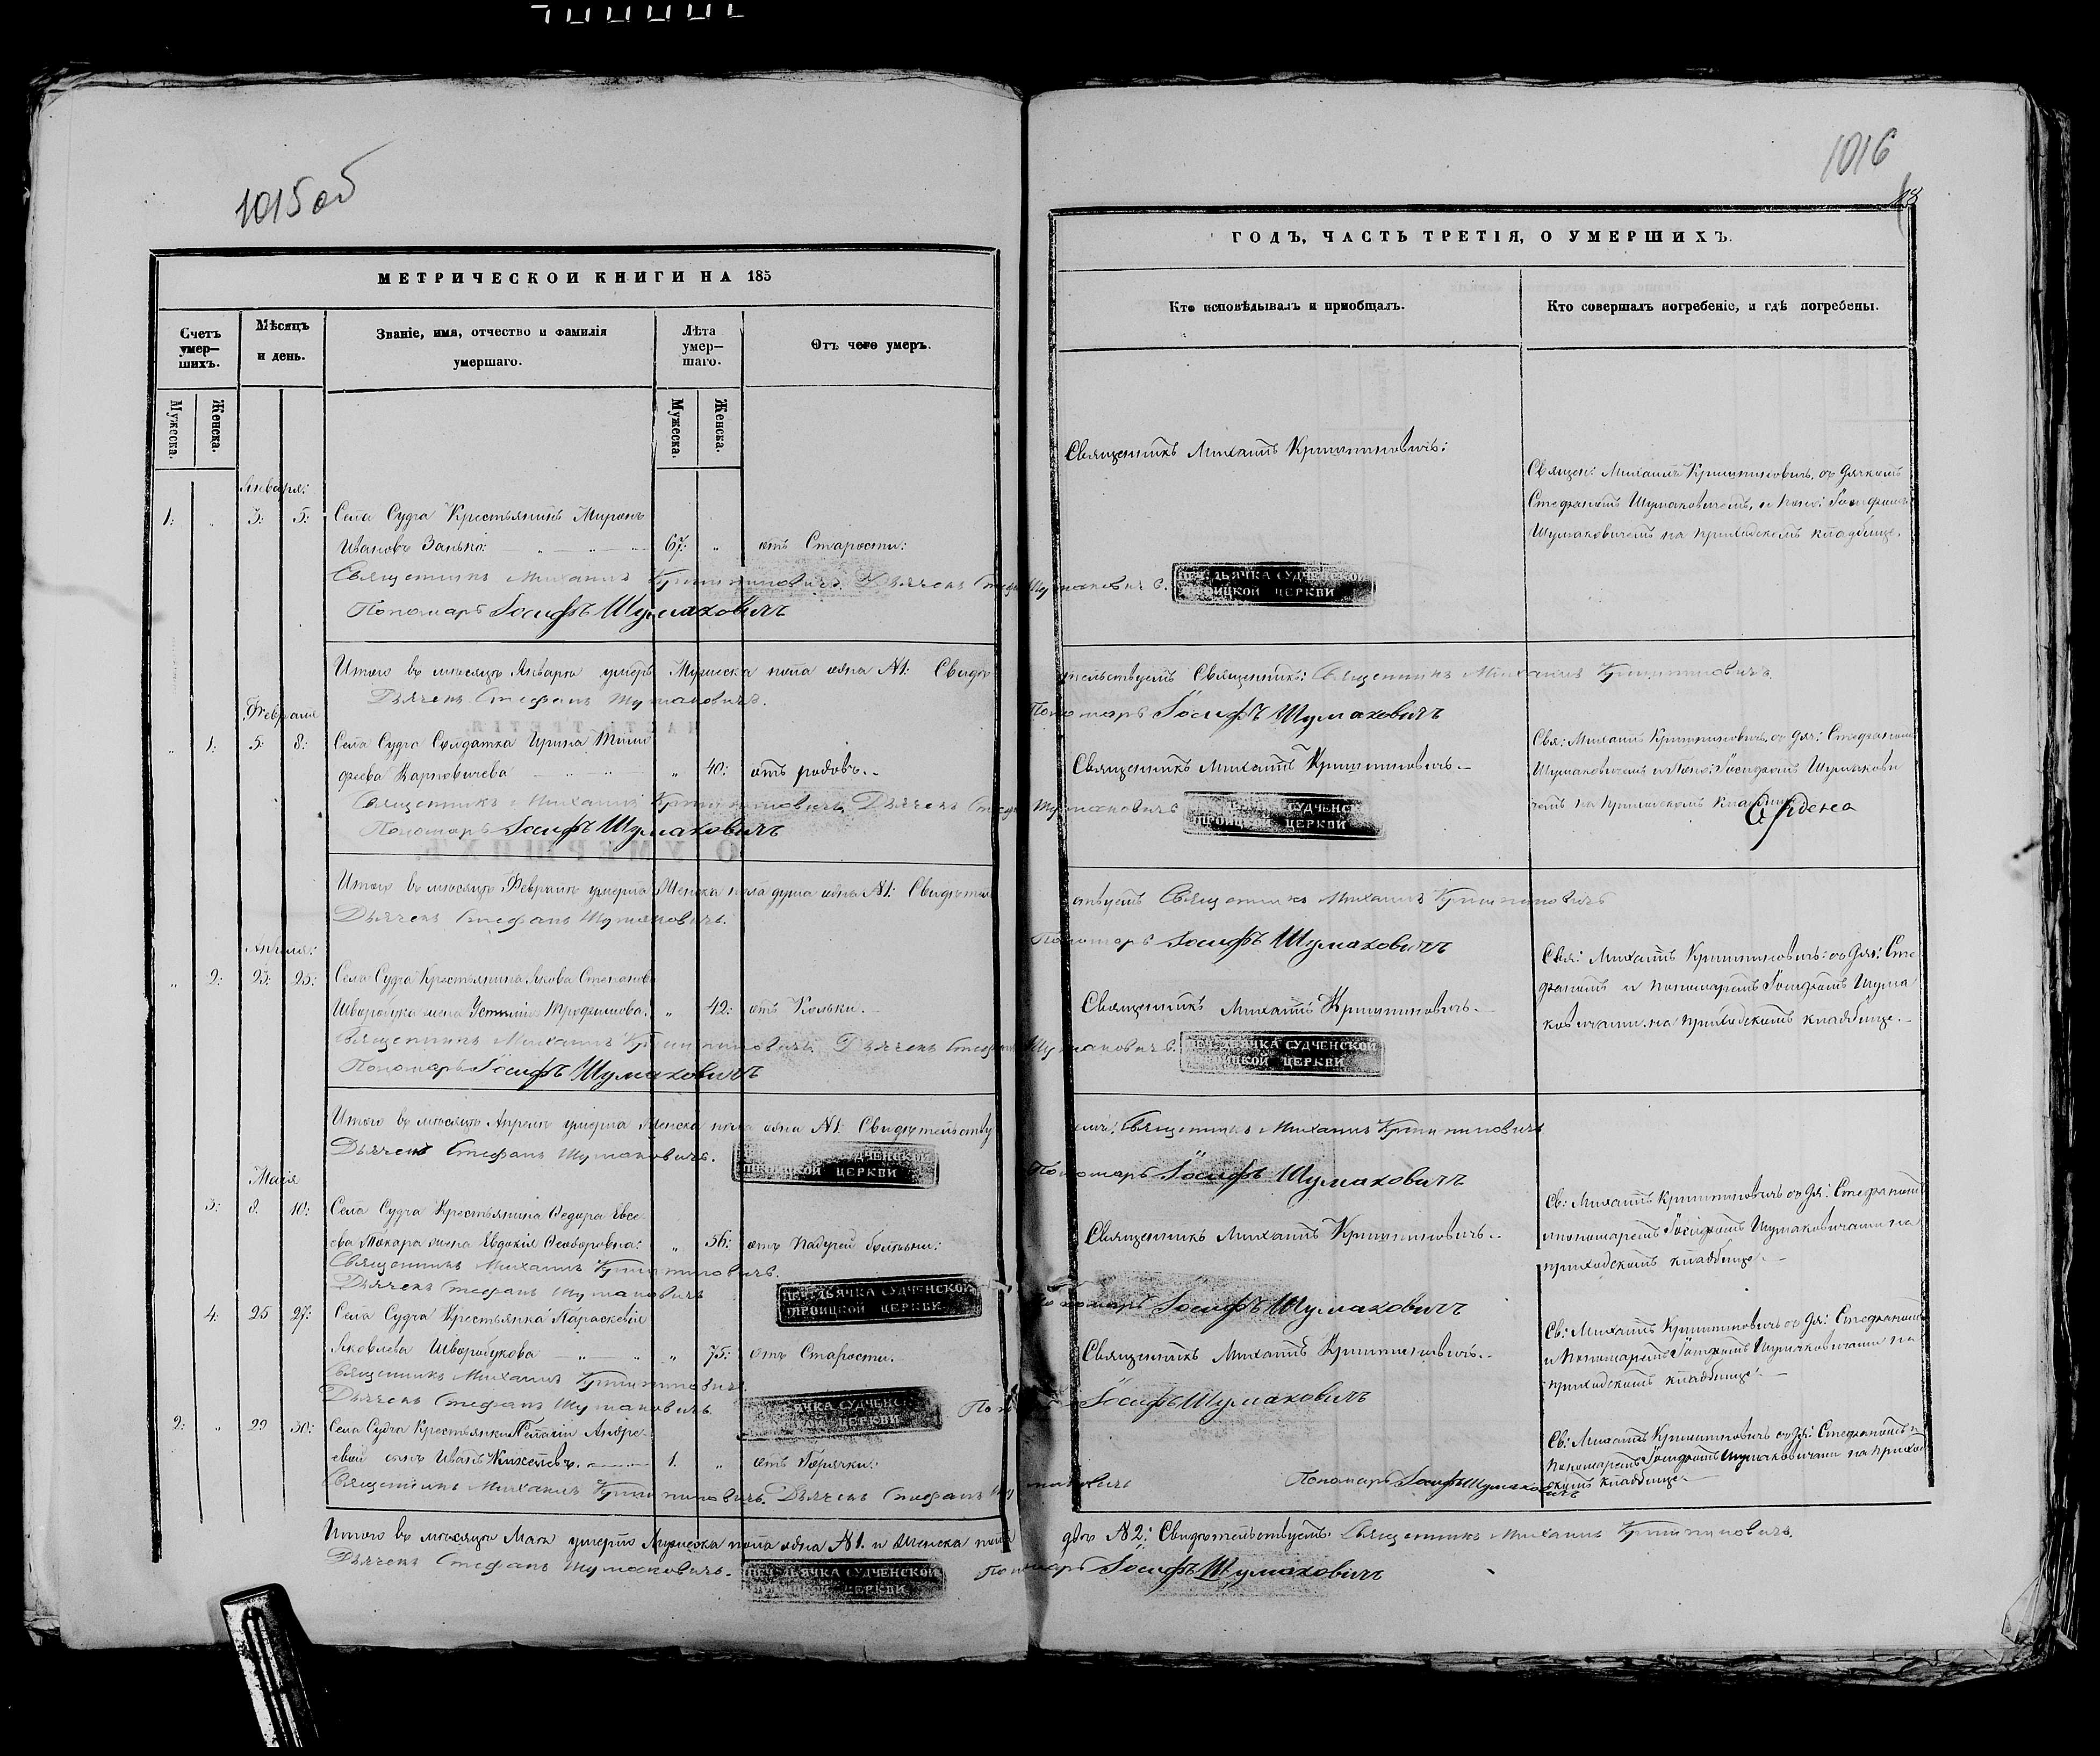 1015 об
МЕТРИЧЕСКОЙ КНИГИ НА 185
Счетъ умер—шихъ.
Мѣсяцъ и день.
Званіе, имя, отчество и фамилія
умершаго.
Лѣта умер—шаго.
Отъ чего умеръ.
Мужеска.
Женска.
Мужеска.
Женска.
Января:
1: „ 3: 5: Села Судча Крестьянинъ Миронъ
Ивановъ Занько: 67: „ отъ Старости:
Священникъ Михаилъ Криштиновичъ Дьячекъ Стефанъ Шумаковичъ.
Пономарь Іосифъ Шумаховичъ
Итого въ мѣсяцѣ Январѣ умеръ Мужеска пола одна №1: Свидѣ
Дьячекъ Стефанъ Шумаковичъ.
Февраля
„ 1: 5: 8: Села Судча Солдатка Ирина Тимо
феева Карповичева „ 40: отъ родовъ.
Священникъ Михаилъ Криштиновичъ Дьячекъ Стефанъ Шумаковичъ
Пономарь Іосифъ Шумаховичъ
Итого въ мѣсяцѣ Февралѣ умерла Женска пола душа одна №1: Свидѣтель
Дьячекъ Стефанъ Шумаковичъ.
Апреля:
„ 2: 23: 25: Села Судча Крестьянина Якова Степанова
Шворобука жена Трофимова. „ 42: отъ Кольки.
Священникъ Михаилъ Криштиновичъ Дьячекъ Стефанъ Шумаковичъ.
Пономарь Іосифъ Шумаховичъ
Итого въ мѣсяцѣ Апрелѣ умерла Женска пола одна №1: Свидѣтельству
Дьячекъ Стефанъ Шумаковичъ.
СУДЧЕНСКОЙ
ТРОИЦКОЙ ЦЕРКВИ
Маія
3: 8. 10: Села Судча Крестьянина Ѳедора Евсе
ева Макара жена Евдокія Ѳеодоровна: „ 56: отъ Падучей болѣзни:
Священникъ Михаилъ Криштиновичъ.
Дьячекъ Стефанъ Шумаковичъ
ПЕЧ: ДЬЯЧКА СУДЧЕНСКОЙ
ТРОИЦКОЙ ЦЕРКВИ
4: 25 27: Села Судча Крестьянка Параскевія
Яковлева Шворобукова „ 75: отъ Старости.
Священникъ Михаилъ Криштиновичъ
Дьячекъ Стефанъ Шумаковичъ.
ДЬЯЧКА СУДЧЕНС
ЦЕРКВИ
2: „ 29 30: Села Судча Крестьянки Андре
евой сынъ Иванъ 1. „ отъ Горячки:
Священникъ Михаилъ Криштиновичъ. Дьячекъ Стефанъ Шумаковичъ
Итого въ мѣсяцѣ Маіѣ умерло Мужеска пола одна №1. и Женска пола
Дьячекъ Стефанъ Шумаковичъ.
ПЕЧ: ДЬЯЧКА СУДЧЕНСКОЙ
ТРОИЦКОЙ ЦЕРКВИ
1016
ГОДЪ, ЧАСТЬ ТРЕТІЯ, О УМЕРШИХЪ.
Кто исповѣдывалъ и пріобщалъ.
Кто совершалъ погребеніе, и гдѣ погребены.
Священникъ Михаилъ Криштиновичъ:
Священ: Михаилъ Криштиновичъ, съ Дячкомъ
Стефаномъ Шумаковичемъ, и поно: Іосифомъ
Шумаковичемъ на приходскомъ кладбище.
ПЕЧ: ДЬЯЧКА СУДЧЕНСКОЙ
ТРОИЦКОЙ ЦЕРКВИ
тельствуетъ Священникъ: Священникъ Михаилъ Криштиновичъ.
Пономарь Іосифъ Шумаховичъ
Священникъ Михаилъ Криштиновичъ.
Свя: Михаилъ Криштиновичъ съ Дяч: Стефаномъ
Шумаковичемъ и Поно: Іосифомъ Шумакови
чемъ на приходскомъ кладбище
СУДЧЕНС
ТРОИЦКОЙ ЦЕРКВИ
ствуетъ Священникъ Михаилъ Криштиновичъ
Пономарь Іосифъ Шумаховичъ
Священникъ Михаилъ Криштиновичъ.
Свя: Михаилъ Криштиновичъ: съ Дяч: Сте
фаномъ и пономаремъ Іосифомъ Шума
ковичами на приходскомъ кладбище.
ДЬЯЧКА СУДЧЕНСКОЙ
ТРОИЦКОЙ ЦЕРКВИ
етъ: Священникъ Михаилъ Криштиновичъ
Пономарь Іосифъ Шумаховичъ
Священникъ Михаилъ Криштиновичъ.
Св: Михаилъ Криштиновичъ съ Дя: Стефаномъ
и пономаремъ Іосифомъ Шумаковичами на
приходскомъ кладбище.
Пономарь Іосифъ Шумаховичъ
Священникъ Михаилъ Криштиновичъ.
Св: Михаилъ Криштиновичъ съ Дя: Стефаномъ
и Пономаремъ Іосифомъ Шумаковичами на
приходскомъ кладбище.
Пономарь Іосифъ Шумаховичъ
Св: Михаилъ Криштиновичъ съ Дя: Стефаномъ и
Пономаремъ Іосифомъ Шумаковичами на приход
скомъ кладбище.
Пономарь Іосифъ Шумаковичъ
двѣ №2: Свидѣтельствуетъ: Священникъ Михаилъ Криштиновичъ.
Пономарь Іосифъ Шумаховичъ